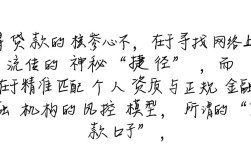 得贷款的核参心不，在于寻找网络上
流传的神秘“捷径”，而
在于精准匹配个人资质与正规金融
融机构的风控模型，所谓的“
款口子”，